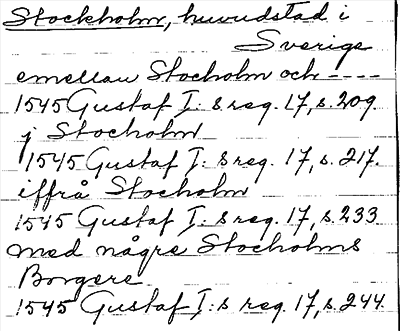 Stockholm, huvudstad i
Sverige
emellan Stocholm och ----
1545 Gustaf I:s reg. 17, s. 209.
j Stocholm
1545 Gustaf I:s reg. 17, s. 217.
iffrå Stocholm
1545 Gustaf I:s reg. 17, s. 233.
med någre Stocholms
Borgere
1545 Gustaf I:s reg. 17, s. 244.